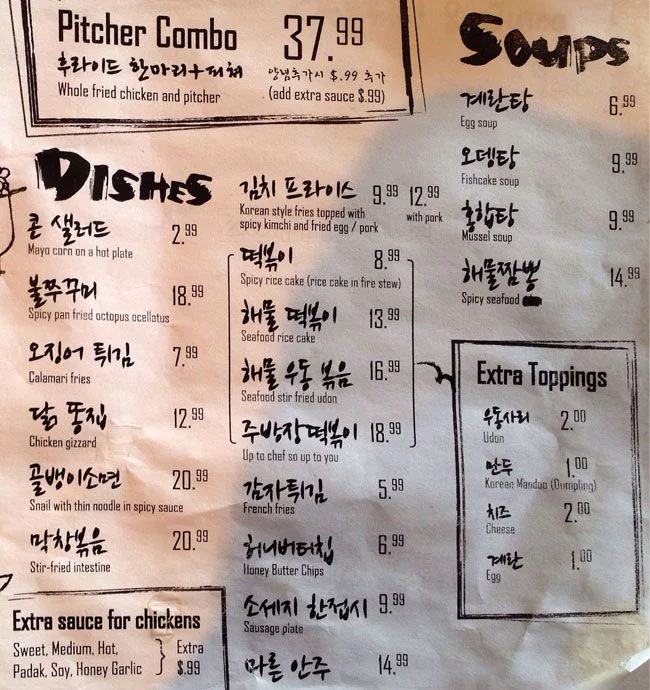 Pitcher Combo 37.99
후라이드 한마리+피쳐 양념추가시 $.99 추가
Whole fried chicken and pitcher (add extra sauce $.99)
DISHES
콘 샐러드 2.99
Mayo corn on a hot plate
불쭈꾸미 18.99
Spicy pan fried octopus ocellatus
오징어 튀김 7.99
Calamari fries
닭 똥집 12.99
Chicken gizzard
골뱅이소면 20.99
Snail with thin noodle in spicy sauce
막창볶음 20.99
Stir-fried intestine
Extra sauce for chickens
Sweet, Medium, Hot, Extra
Padak, Soy, Honey Garlic $.99
김치 프라이스 9.99 12.99
Korean style fries topped with with pork
spicy kimchi and fried egg / pork
떡볶이 8.99
Spicy rice cake (rice cake in fire stew)
해물 떡볶이 13.99
Seafood rice cake
해물 우동 볶음 16.99
Seafood stir fried udon
주방장떡볶이 18.99
Up to chef so up to you
감자튀김 5.99
French fries
허니버터칩 6.99
Honey Butter Chips
소세지 한접시 9.99
Sausage plate
마른 안주 14.99
SOUPS
계란탕 6.99
Egg soup
오뎅탕 9.99
Fishcake soup
홍합탕 9.99
Mussel soup
해물짬뽕 14.99
Spicy seafood
Extra Toppings
우동사리 2.00
Udon
만두 1.00
Korean Mandoo (Dumpling)
치즈 2.00
Cheese
계란 1.00
Egg